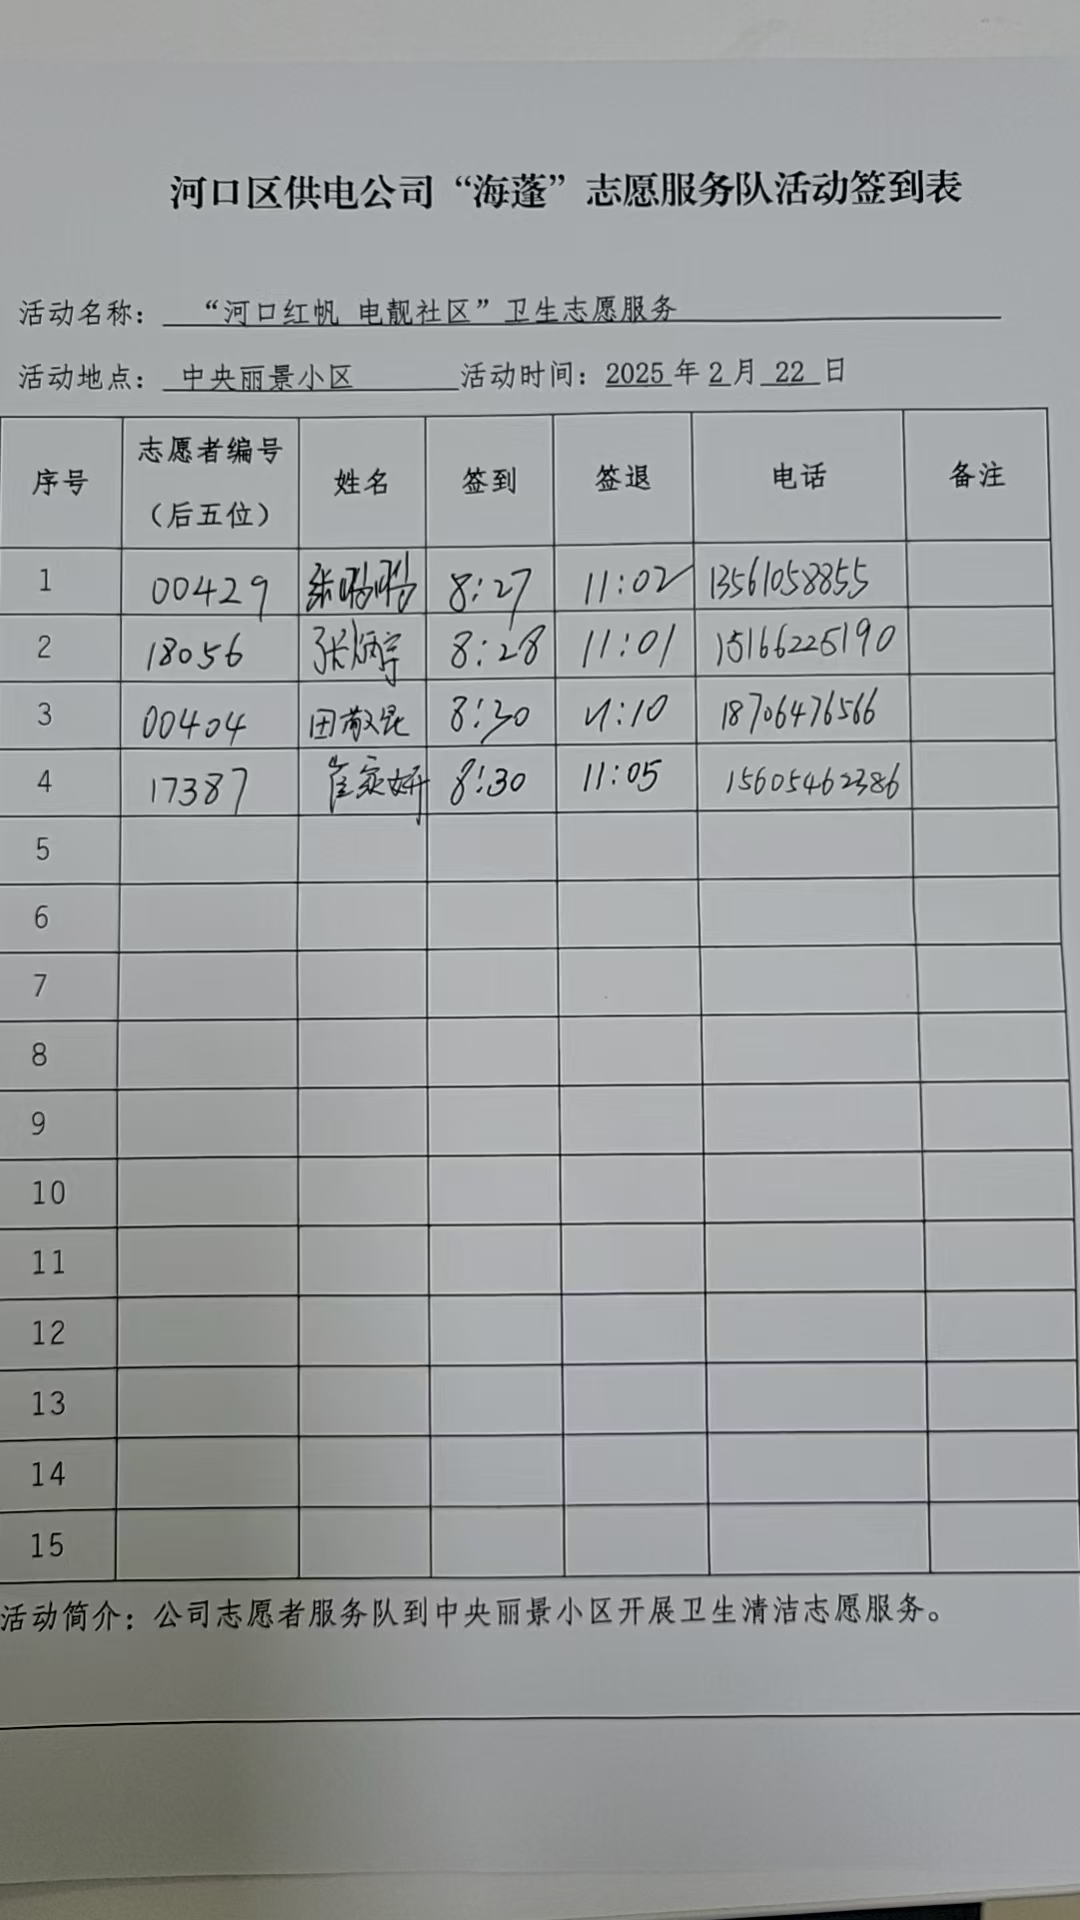 河口区供电公司“海蓬”志愿服务队活动签到表
活动名称： “河口红帆 电靓社区”卫生志愿服务
活动地点： 中央丽景小区 活动时间：2025 年 2 月 22 日
序号 志愿者编号（后五位） 姓名 签到 签退 电话 备注
1 00429 8:27 11:02 13561058855
2 18056 张炳宇 8:28 11:01 15166225190
3 00404 田敬昆 8:30 11:10 18706476566
4 17387 崔家妍 8:30 11:05 15605462386
5
6
7
8
9
10
11
12
13
14
15
活动简介：公司志愿者服务队到中央丽景小区开展卫生清洁志愿服务。